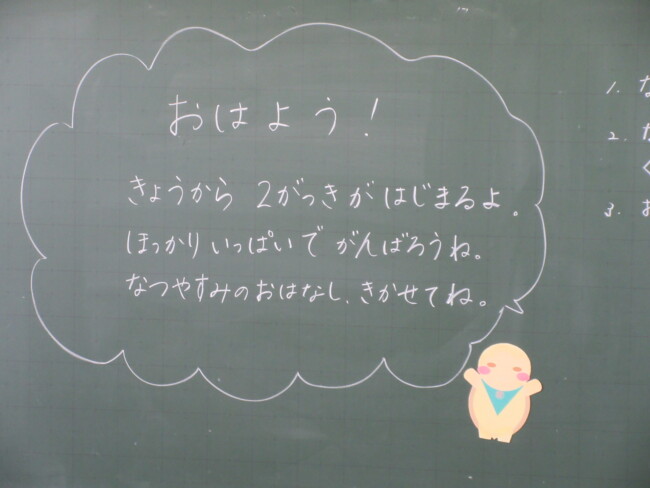 おはよう!
きょうから 2がっきが はじまるよ。
ほっかり いっぱいで がんばろうね。
なつやすみの おはなし、きかせてね。
1. な
2. た
く
3. お